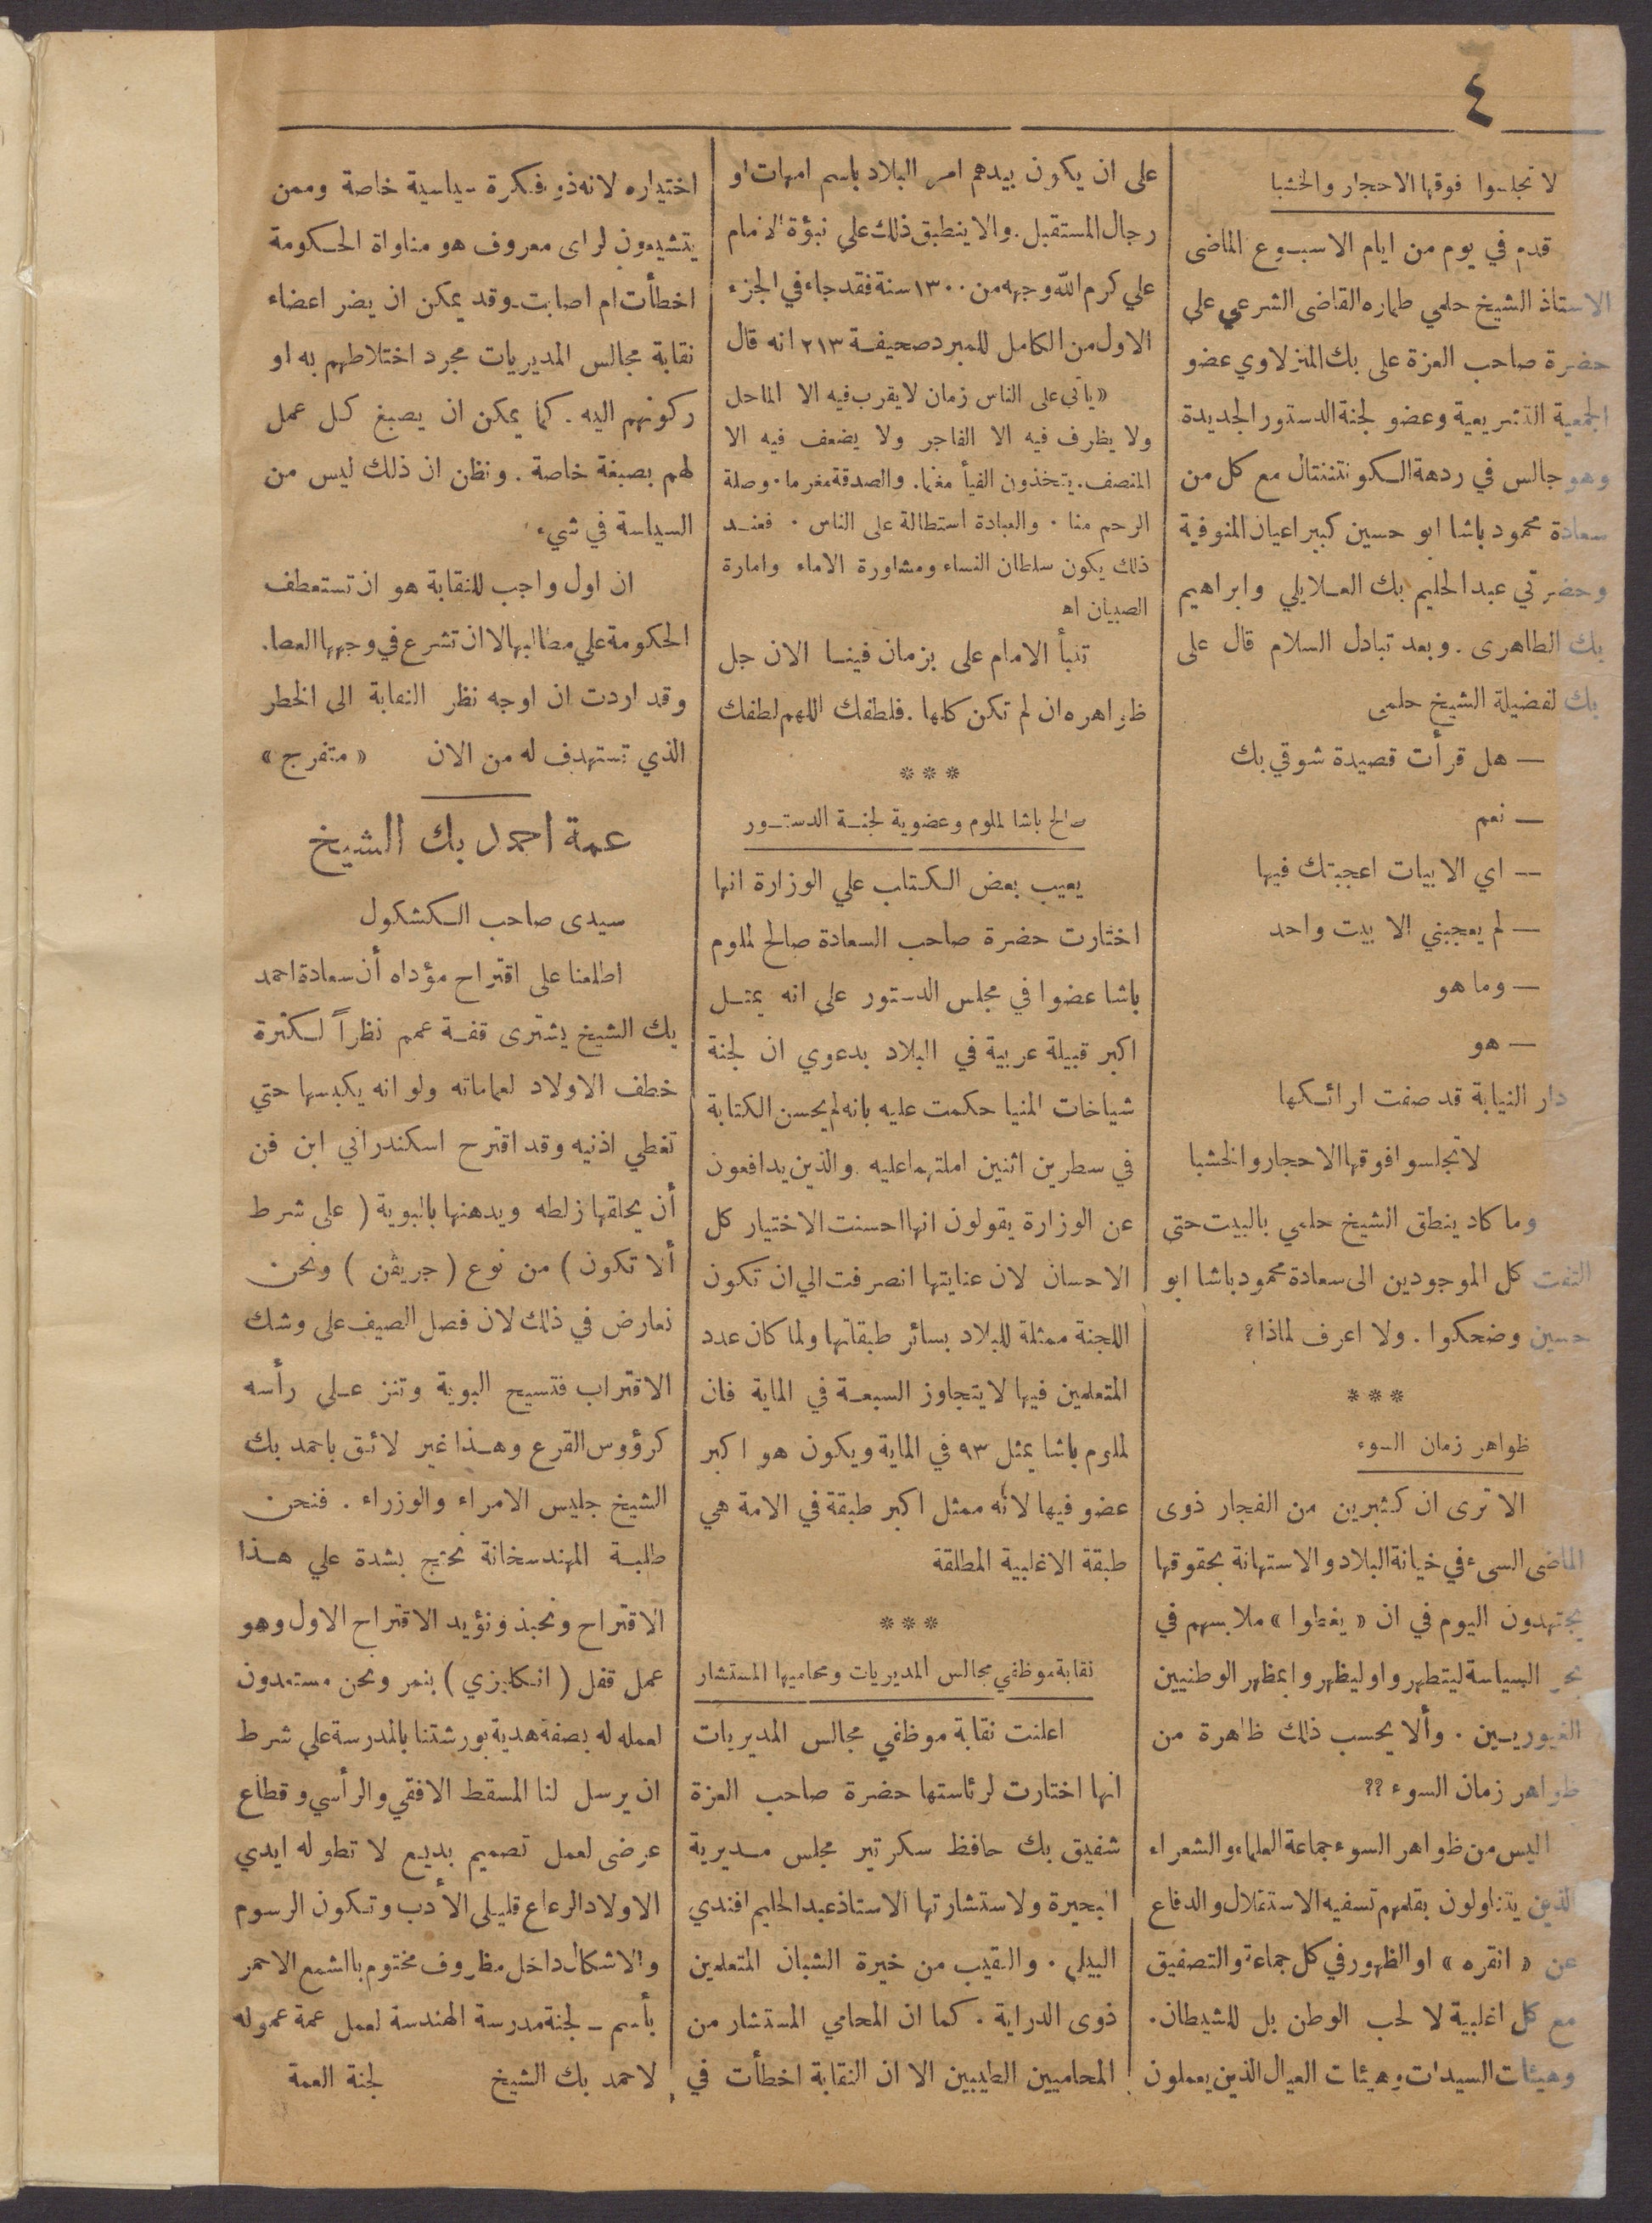 ٤
لا تجلسوا فوقها الاحجار والخشبا
قدم في يوم من ايام الاسبوع الماضى
الاستاذ الشيخ حلمي طماره القاضى الشرعي علي
حضرة صاحب العزة على بك المنزلاوي عضو
الجمعية التشريعية وعضو لجنة الدستور الجديدة
وهو جالس في ردهة الكونتننتال مع كل من
سعادة محمود باشا ابو حسين كبير اعيان المنوفية
وحضرتي عبد الحليم بك العلايلي وابراهيم
بك الطاهرى . وبعد تبادل السلام قال على
بك لفضيلة الشيخ حلمى
— هل قرأت قصيدة شوقي بك
— نعم
— اي الابيات اعجبتك فيها
— لم يعجبني الا بيت واحد
— وما هو
— هو
دار النيابة قد صفت ارائكها
لا تجلسوا فوقها الاحجار والخشبا
وما كاد ينطق الشيخ حلمي بالبيت حتى
التفت كل الموجودين الى سعادة محمود باشا ابو
حسين وضحكوا . ولا اعرف لماذا ؟
***
ظواهر زمان السوء
الا ترى ان كثيرين من الفجار ذوى
الماضى السىء في خيانة البلاد والاستهانة بحقوقها
يجتهدون اليوم في ان « يغطوا » ملابسهم في
بحر السياسة ليتطهروا وليظهروا بمظهر الوطنيين
الغيوريين . وألا يحسب ذلك ظاهرة من
ظواهر زمان السوء ؟؟
اليس من ظواهر السوء جماعة العلماء والشعراء
الذين يتناولون بقلمهم تسفيه الاستقلال والدفاع
عن « انقره » او الظهور في كل جماعة والتصفيق
مع كل اغلبية لا لحب الوطن بل للشيطان .
وهيئات السيدات وهيئات العيال الذين يعملون
على ان يكون بيدهم امر البلاد باسم امهات او
رجال المستقبل . والا ينطبق ذلك علي نبؤة الامام
علي كرم الله وجهه من ١٣٠٠ سنة فقد جاء في الجزء
الاول من الكامل للمبرد صحيفة ٢١٣ انه قال
« يأتى على الناس زمان لا يقرب فيه الا الماحل
ولا يظرف فيه الا الفاجر ولا يضعف فيه الا
المنصف . يتخذون الفيأ مغنما . والصدقة مغرما . وصلة
الرحم منا . والعبادة استطالة على الناس . فعند
ذلك يكون سلطان النساء ومشاورة الاماء وامارة
الصبيان اه
تنبأ الامام على بزمان فينا الان جل
ظواهره ان لم تكن كلها . فلطفك اللهم لطفك
***
صالح باشا لملوم وعضوية لجنة الدستور
يعيب بعض الكتاب علي الوزارة انها
اختارت حضرة صاحب السعادة صالح لملوم
باشا عضوا في مجلس الدستور على انه يمثل
اكبر قبيلة عربية في البلاد بدعوي ان لجنة
شياخات المنيا حكمت عليه بانه لم يحسن الكتابة
في سطرين اثنين املتهما عليه . والذين يدافعون
عن الوزارة يقولون انها احسنت الاختيار كل
الاحسان لان عنايتها انصرفت الي ان تكون
اللجنة ممثلة للبلاد بسائر طبقاتها ولما كان عدد
المتعلمين فيها لا يتجاوز السبعة في الماية فان
لملوم باشا يمثل ٩٣ في الماية ويكون هو اكبر
عضو فيها لانه ممثل اكبر طبقة في الامة هي
طبقة الاغلبية المطلقة
***
نقابة موظفي مجالس المديريات ومحاميها المستشار
اعلنت نقابة موظفي مجالس المديريات
انها اختارت لرئاستها حضرة صاحب العزة
شفيق بك حافظ سكرتير مجلس مديرية
البحيرة ولاستشارتها الاستاذ عبد الحليم افندي
البيلي . والنقيب من خيرة الشبان المتعلمين
ذوى الدراية . كما ان المحامي المستشار من
المحاميين الطيبين الا ان النقابة اخطأت في
اختياره لانه ذو فكرة سياسية خاصة وممن
يتشيعون لراى معروف هو مناواة الحكومة
اخطأت ام اصابت . وقد يمكن ان يضر اعضاء
نقابة مجالس المديريات مجرد اختلاطهم به او
ركونهم اليه . كما يمكن ان يصبغ كل عمل
لهم بصبغة خاصة . ونظن ان ذلك ليس من
السياسة في شيء
ان اول واجب للنقابة هو ان تستعطف
الحكومة علي مطالبها لا ان تشرع في وجهها العصا .
وقد اردت ان اوجه نظر النقابة الى الخطر
الذي تستهدف له من الان « متفرج »
عمة احمد بك الشيخ
سيدى صاحب الكشكول
اطلعنا على اقتراح مؤداه أن سعادة احمد
بك الشيخ يشترى قفة عمم نظراً لكثرة
خطف الاولاد لعماماته ولو انه يكبسها حتي
تغطي اذنيه وقد اقترح اسكندراني ابن فن
أن يحلقها زلطه ويدهنها بالبوية ( على شرط
ألا تكون ) من نوع ( جريفن ) ونحن
نعارض في ذلك لان فصل الصيف على وشك
الاقتراب فتسيح البوية وتنز على رأسه
كرؤوس القرع وهذا غير لائق باحمد بك
الشيخ جليس الامراء والوزراء . فنحن
طلبة المهندسخانة نحتج بشدة علي هذا
الاقتراح ونحبذ ونؤيد الاقتراح الاول وهو
عمل قفل ( انكليزي ) بنمر ونحن مستعدون
لعمله له بصفة هدية بورشتنا بالمدرسة علي شرط
ان يرسل لنا المسقط الافقي والرأسي وقطاع
عرضى لعمل تصميم بديع لا تطوله ايدي
الاولاد الرعاع قليلى الأدب وتكون الرسوم
والاشكال داخل مظروف مختوم بالشمع الاحمر
بأسم ــ لجنة مدرسة الهندسة لعمل عمة عموله
لاحمد بك الشيخ لجنة العمة